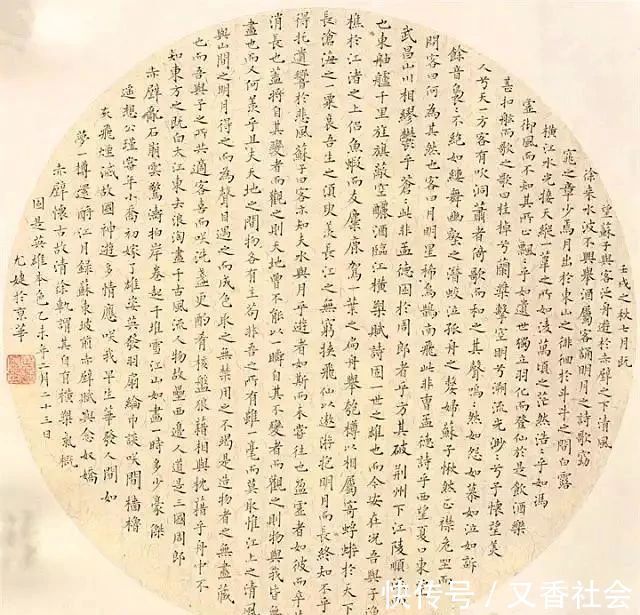 壬戌之秋七月既
望蘇子與客泛舟遊於赤壁之下清風
徐來水波不興舉酒屬客誦明月之詩歌窈
窕之章少焉月出於東山之徘徊於斗牛之間白露
橫江水光接天縱一葦之所如凌萬頃之茫然浩浩乎如馮
虛御風而不知其所止飄飄乎如遺世獨立羽化而登仙於是飲酒樂
甚扣舷而歌之歌曰桂棹兮蘭槳擊空明兮溯流光渺渺兮予懷望美
人兮天一方客有吹洞蕭者倚歌而和之其聲嗚然如怨如慕如泣如訴
餘音裊裊不絕如縷舞幽壑之潛蛟泣孤舟之嫠婦蘇子愀然正襟危坐而
問客曰何為其然也客曰月明星稀烏鵲南飛此非曹孟德詩乎西望夏口東望
武昌山川相繆鬱乎蒼蒼此非孟德困於周郎者乎方其破荊州下江陵順流
也東舳艫千里旌旗蔽空釃酒臨江橫槊賦詩固一世之雄也而今安在況吾與子漁
樵於江渚之上侶魚蝦而友麋鹿駕一葉之扁舟舉匏樽以相屬寄蜉蝣於天下
長滄海之一粟哀吾生之須臾羨長江之無窮挾飛仙以遨遊抱明月而長終知不乎
得托遺響於悲風蘇子曰客亦知夫水與月乎逝者如斯而未嘗往也盈虛者如彼而卒莫
消長也蓋將自其變者而觀之則天地曾不能以一瞬自其不變者而觀之則物與我皆無
盡也而又何羨乎且夫天地之間物各有主苟非吾之所有雖一毫而莫取惟江上之清風
與山間之明月得之而為聲目遇之而成色取之無禁用之不竭是造物者之無盡藏
也而吾與子之所共適客喜而咲洗盞更酌肴核盤狼籍相與枕藉乎舟中不
知東方之既白大江東去浪淘盡千古風流人物故壘西邊人道是三國周郎
赤壁亂石崩雲驚濤拍岸卷起千堆雪江山如畫一時多少豪傑
遙想公瑾當年小喬初嫁了雄姿英發羽扇綸巾談咲間檣櫓
灰飛煙滅故國神遊多情應咲我早生華發人間如
夢一樽還酹江月錄蘇東坡前赤壁賦與念奴嬌
赤壁懷古故清徐軌謂其自有橫槊氣概
固是英雄本色乙未年二月二十三日
尤婕於京華
快传号 / 又香社会